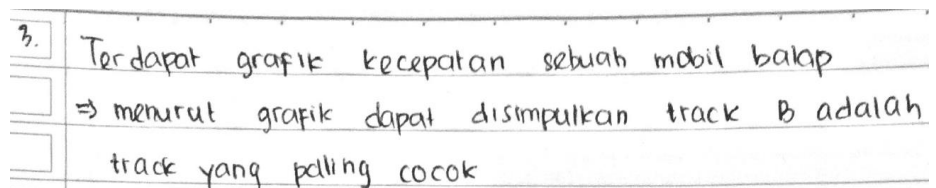 3. Terdapat grafik kecepatan sebuah mobil balap
⇒ menurut grafik dapat disimpulkan track B adalah
track yang paling cocok